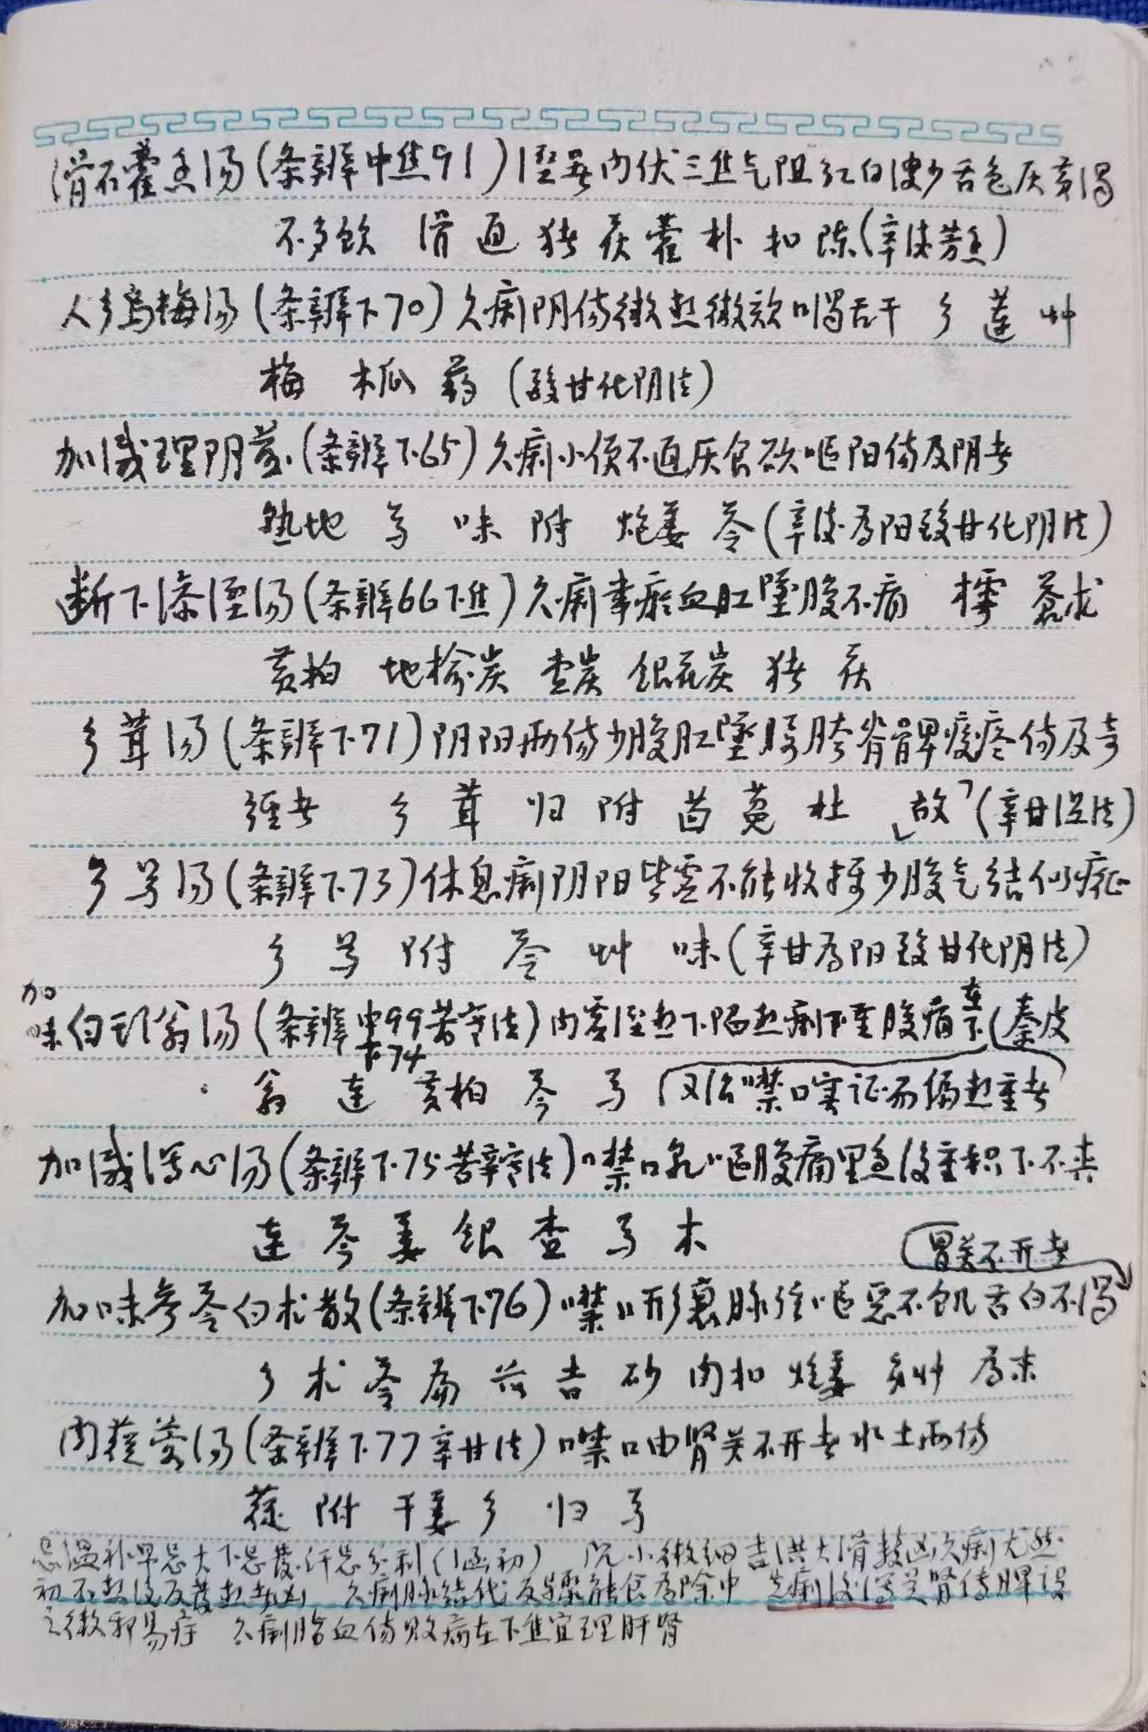 滑石藿香汤(条辨中焦91)湿暑内伏三焦气阻红白滞少舌色灰黄渴
不多饮 滑 通 猪 茯 藿 朴 扣 陈(辛淡芳香)
人参乌梅汤(条辨下70)久痢阴伤微热微咳口渴舌干 参 莲 草
梅 木瓜 药 (酸甘化阴法)
加减理阴煎(条辨下65)久痢小便不通厌食欲呕阳伤及阴者
熟地 芍 味 附 炮姜 苓(辛淡为阳酸甘化阴法)
断下渗湿汤(条辨66下焦)久痢带瘀血肛坠腹不痛 樗 苍术
黄柏 地榆炭 查炭 银花炭 猪 茯
参茸汤(条辨下71)阴阳两伤少腹肛坠腰胯脊髀痠疼伤及奇
经者 参 茸 归 附 茴 菟 杜 (辛甘温法)
参芍汤(条辨下73)休息痢阴阳皆虚不能收摄少腹气结似癥
参 芍 附 苓 草 味(辛甘为阳酸甘化阴法)
加味白头翁汤(条辨中99苦寒法)内虚湿热下陷热痢下重腹痛(秦皮
下74
翁 连 黄柏 芩 芍 又治噤口实证而偏热重者
加减泻心汤(条辨下75苦辛寒法)噤口 呕腹痛里急后重积下不爽
连 芩 姜 银 查 芍 木
胃关不开者
加味参苓白术散(条辨下76)噤口形衰脉 呕恶不饥舌白不渴
参 术 苓 扁 苡 吉 砂 肉扣 炮姜 炙草 为末
肉苁蓉汤(条辨下77辛甘法)噤口由肾关不开者水土两伤
苁 附 干姜 参 归 芍
忌温补早忌大下忌发汗忌分利(初) 沉小微细吉洪大滑数凶久痢尤然
初不热后反发热者凶 久痢脉结代 反 能食为除中 先痢后 肾传脾
微邪易疗 久痢 血伤 病在下焦宜理肝肾